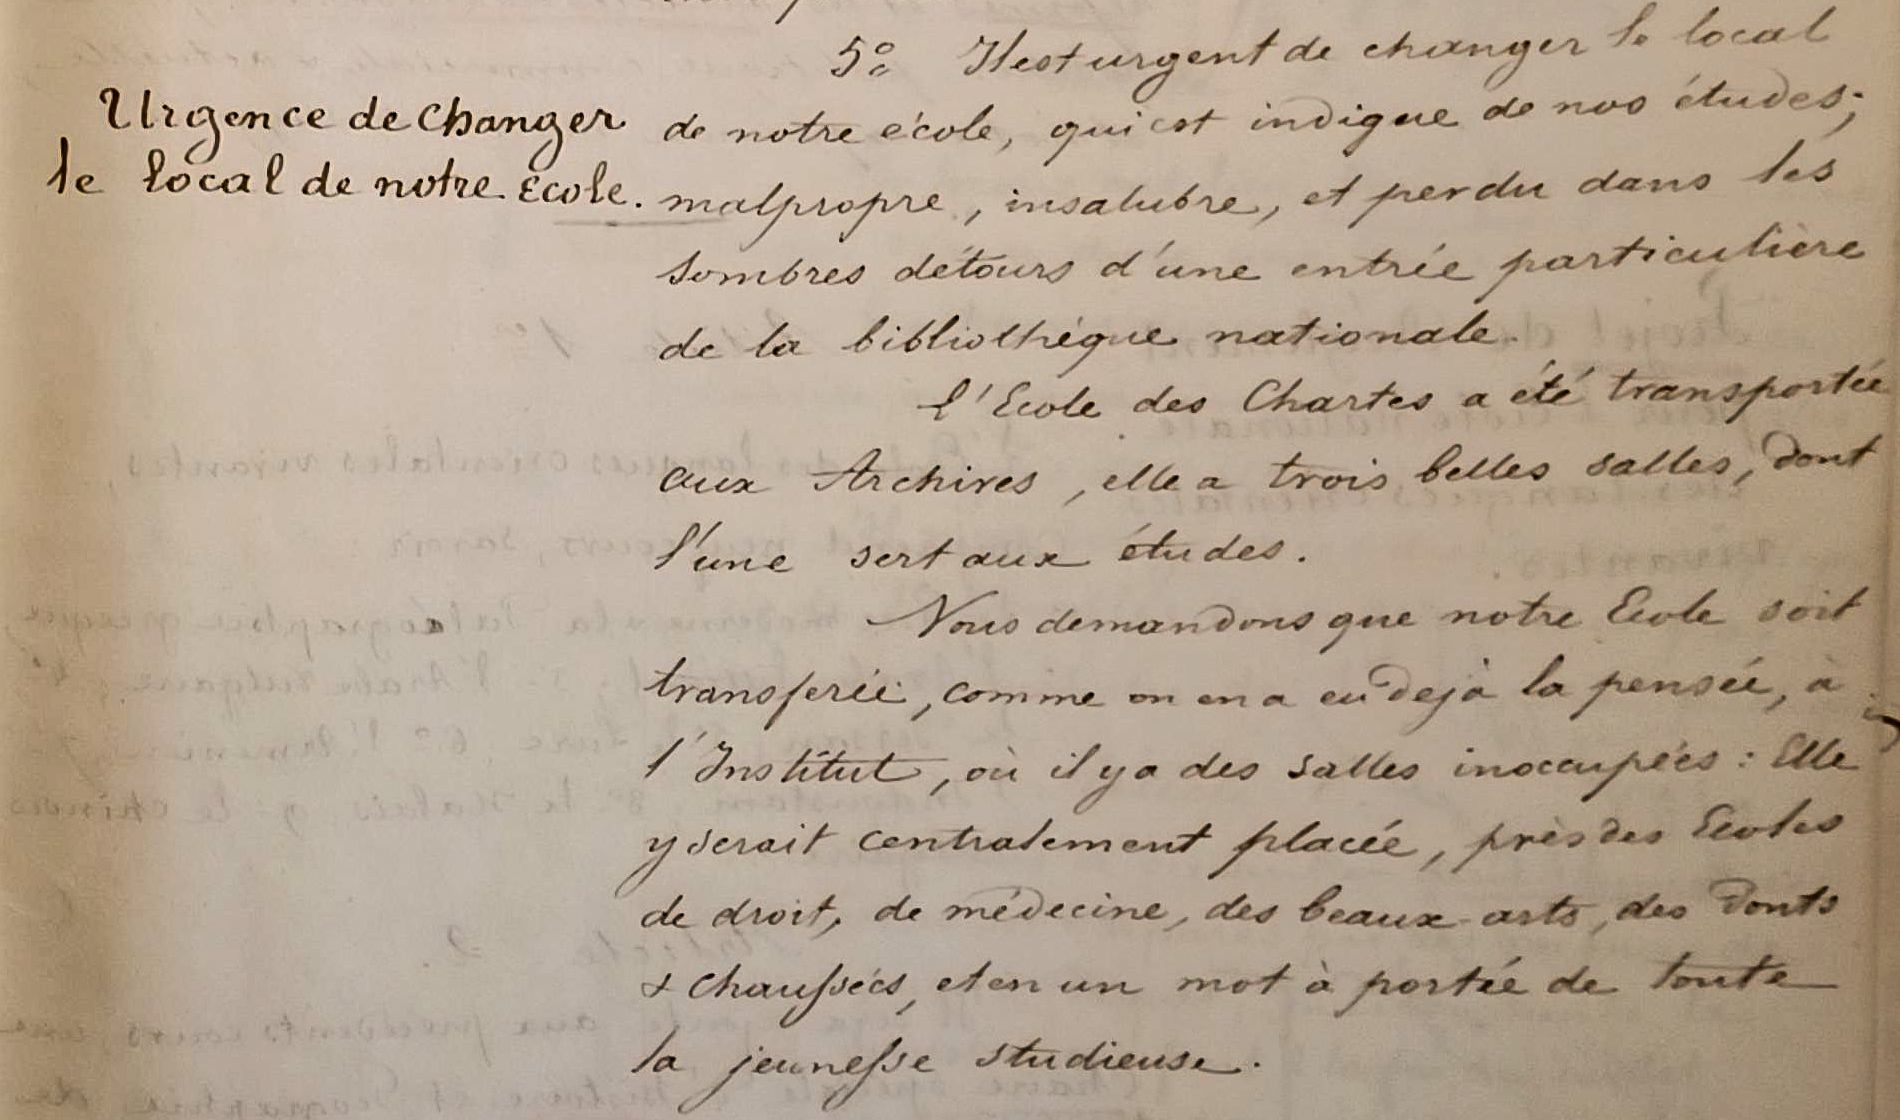 5° Il est urgent de changer le local
Urgence de changer
le local de notre Ecole.
de notre école, qui est indigne de nos études;
malpropre, insalubre, et perdu dans les
sombres détours d'une entrée particulière
de la bibliothéque nationale.
l'Ecole des Chartes a été transportée
aux Archives, elle a trois belles salles, dont
l'une sert aux études.
Nous demandons que notre Ecole soit
transferée, comme on en a eu dejà la pensée, à
l'Institut, où il y a des salles inoccupées : Elle
y serait centralement placée, près des Ecoles
de droit, de médecine, des beaux-arts, des Ponts
& chaussées, et en un mot à portée de toute
la jeunesse studieuse.